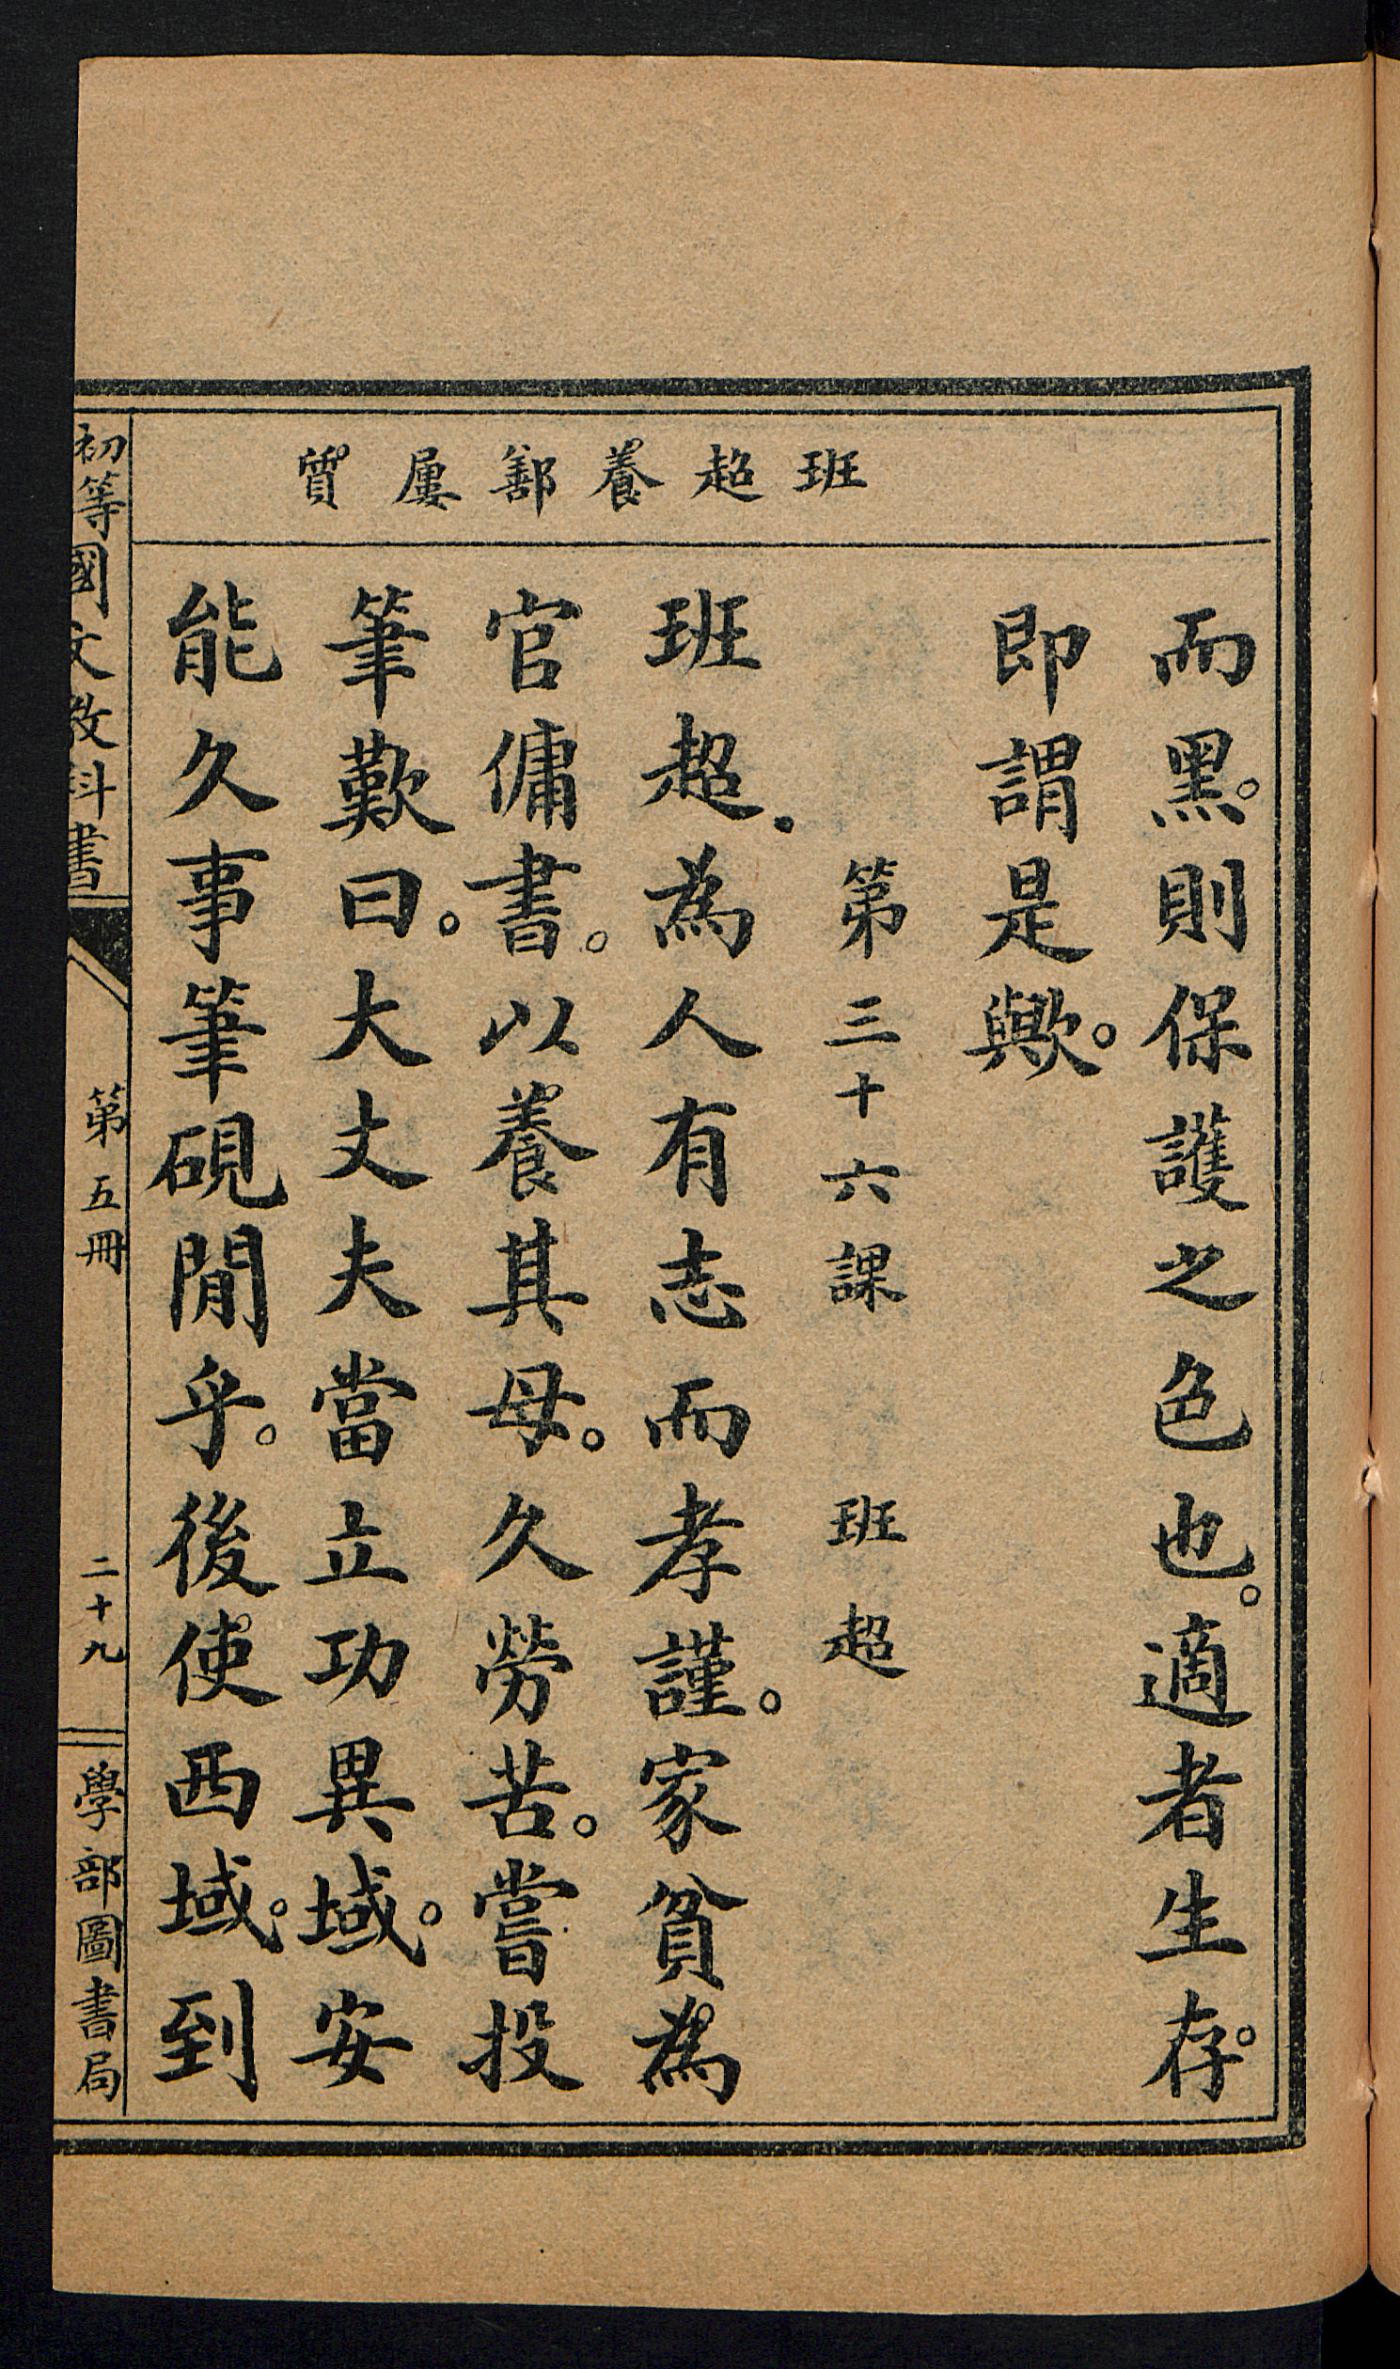 班超養鄯屢質
而黑。則保護之色也。適者生存。
即謂是歟。
第三十六課　班超
班超。為人有志而孝謹。家貧。為
官傭書。以養其母。久勞苦。嘗投
筆歎曰。大丈夫當立功異域。安
能久事筆硯閒乎。後使西域。到
初等國文教科書
第五冊
二十九
學部圖書局